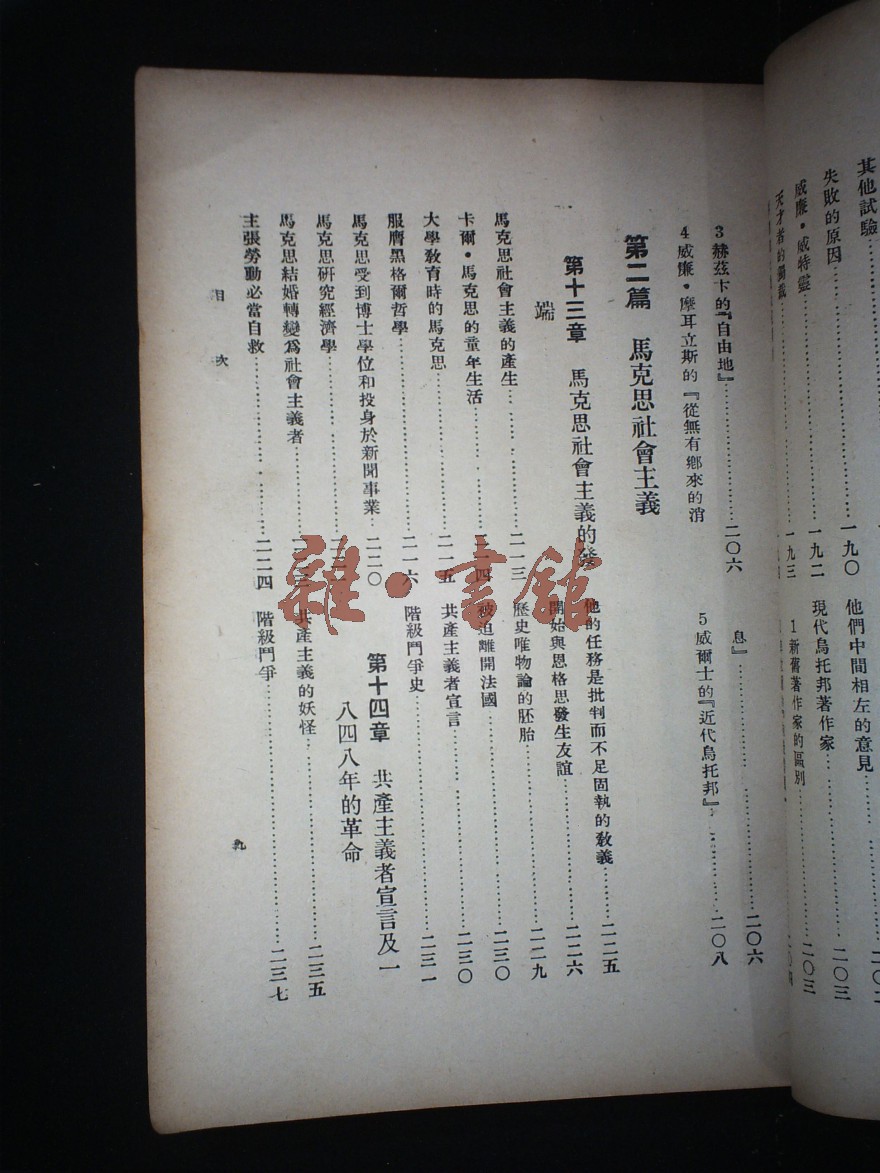 其他試驗
失敗的原因……一九〇
威廉・威特靈……一九二
天才者的獨裁……一九三
他們中間相左的意見……二〇
現代烏托邦著作家……二〇三
1新舊著作家的區別……二〇三
3赫茲卡的『自由地』……二〇六
4威廉・摩耳立斯的『從無有鄉來的消
息』……二〇六
5威爾士的『近代烏托邦』……二〇八
第二篇 馬克思社會主義
第十三章 馬克思社會主義的發
端
馬克思社會主義的產生……二一三
卡爾・馬克思的童年生活……二一四
大學教育時的馬克思……二一五
服膺黑格爾哲學……二一六
馬克思受到博士學位和投身於新聞事業……二二〇
馬克思研究經濟學……二二
馬克思結婚轉變為社會主義者……二二
主張勞動必當自救……二二四
他的任務是批判而不是固執的教義……二二五
開始與恩格思發生友誼……二二六
歷史唯物論的胚胎……二二九
被迫離開法國……二三〇
共產主義者宣言……二三〇
階級鬥爭史……二三一
第十四章 共產主義者宣言及一
八四八年的革命
共產主義的妖怪……二三五
階級鬥爭……二三七
目次
九
雜・書館